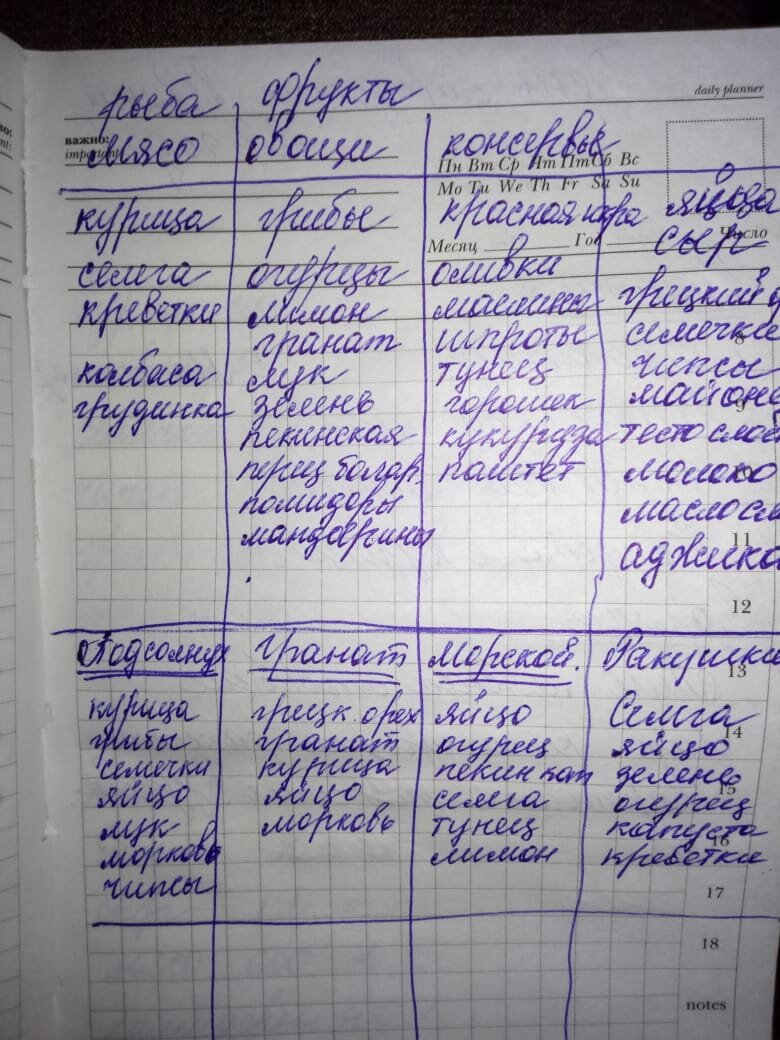 daily planner
рыба
мясо
курица
семга
креветки
колбаса
грудинка
фрукты
овощи
грибы
огурцы
лимон
гранат
лук
зелень
пекинская
перец болгар.
помидоры
мандарины
консервы
красная икра
оливки
маслины
шпроты
тунец
горошек
кукуруза
паштет
яйца
сыр
грецкий
семечки
чипсы
майоне
тесто слое
молоко
масло сл
аджика
важно:
important:
Пн Вт Ср Чт Пт Сб Вс
Mo Tu We Th Fr Sa Su
Месяц Год Число
8
9
10
11
12
13
14
15
16
17
18
notes
Подсолнух
курица
грибы
семечки
яйцо
лук
морковь
чипсы
Гранат
грецк. орех
гранат
курица
яйцо
морковь
Морской.
яйцо
огурец
пекин кап
семга
тунец
лимон
Ракушки
Семга
яйцо
зелень
огурец
капуста
креветки